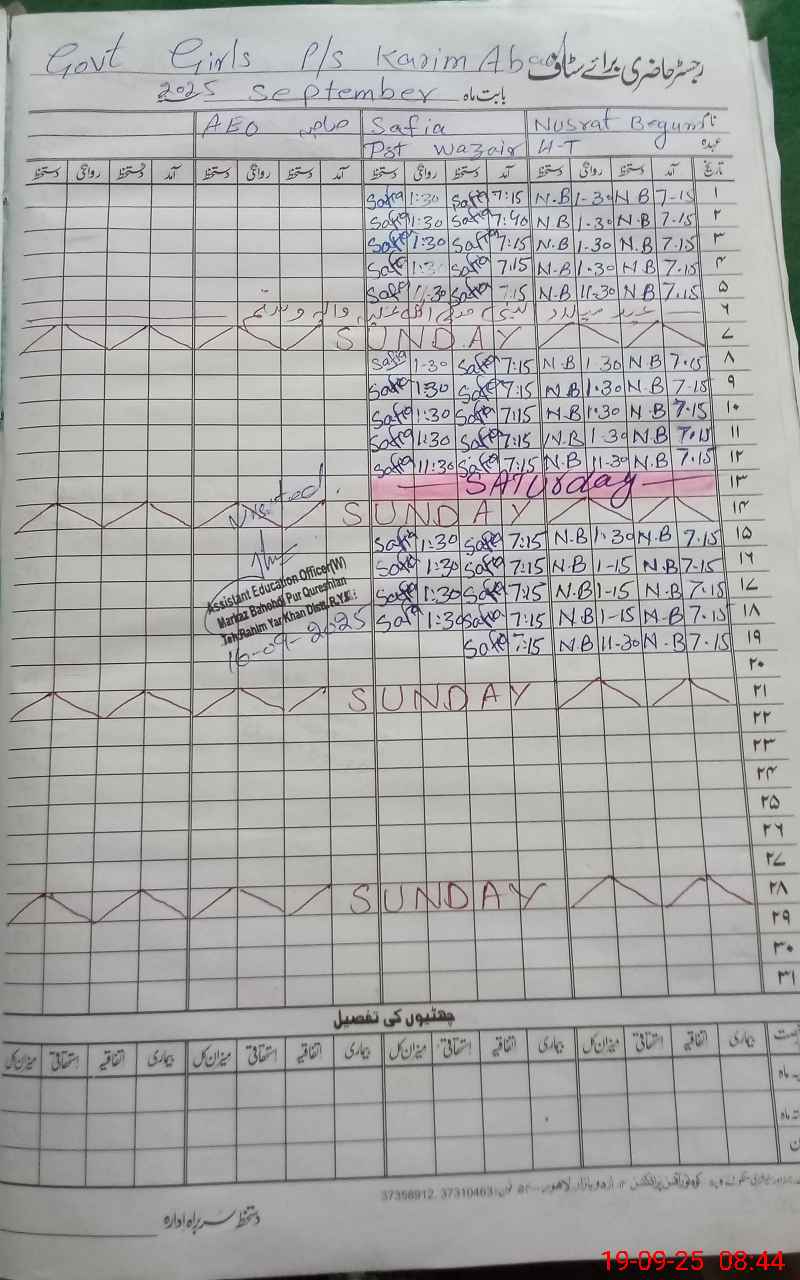 Govt Girls P/s Karim Abad رجسٹر حاضری برائے سٹاف
2025 September بابت ماہ
AEO Safia Nusrat Begum نام
Pst H-T عہدہ
دستخط روانگی دستخط آمد دستخط روانگی دستخط آمد دستخط روانگی دستخط آمد تاریخ
Safia 1:30 Safia 7:15 N.B 1-30 N.B 7-15 ۱
Safia 1:30 Safia 7:40 N.B 1.30 N.B 7.15 ۲
Safia 1:30 Safia 7:15 N.B 1.30 N.B 7.15 ۳
Safia 1:30 Safia 7:15 N-B 1.30 N B 7.15 ۴
Safia 11:30 Safia 7:15 N-B 11-30 N B 7.15 ۵
۶
SUNDAY ۷
Safia 1-30 Safia 7:15 N.B 1.30 N.B 7.15 ۸
Safia 1:30 Safia 7:15 N.B 1.30 N.B 7.15 ۹
Safia 1:30 Safia 7:15 N-B 1.30 N.B 7.15 ۱۰
Safia 1:30 Safia 7:15 N.B 1-30 N.B 7.15 ۱۱
Safia 11:30 Safia 7:15 N.B 11-30 N.B 7.15 ۱۲
SATurday ۱۳
Visited.
SUNDAY ۱۴
Safia 1:30 Safia 7:15 N.B 1.30 N.B 7.15 ۱۵
Safia 1:30 Safia 7:15 N.B 1-15 N.B 7-15 ۱۶
Safia 1:30 Safia 7:15 N.B 1-15 N.B 7.15 ۱۷
Safia 1:30 Safia 7:15 N.B 1-15 N.B 7.15 ۱۸
Safia 7:15 N.B 11-30 N-B 7.15 ۱۹
Assistant Education Officer(W)
Markaz Bahoodi Pur Qureshian
Teh:Rahim Yar Khan Distt: R.Y.K:
16-09-2025
۲۰
SUNDAY ۲۱
۲۲
۲۳
۲۴
۲۵
۲۶
۲۷
SUNDAY ۲۸
۲۹
۳۰
۳۱
چھٹیوں کی تفصیل
میزان کل استحقاقی اتفاقیہ بیماری میزان کل استحقاقی اتفاقیہ بیماری میزان کل استحقاقی اتفاقیہ بیماری میزان کل استحقاقی اتفاقیہ بیماری
37358912, 37310463
دستخط سربراہ ادارہ
19-09-25 08:44